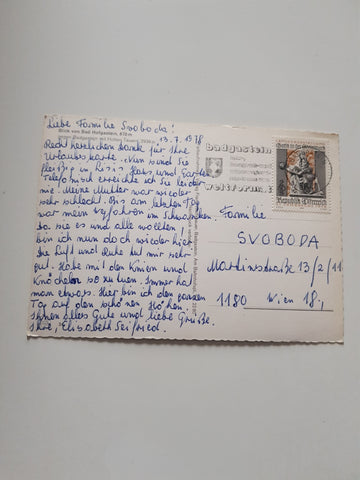 Liebe Familie Svoboda!
13.7.1978
Blick von Bad Hofgastein, 870 m
Recht herzlichen Dank für Ihre
Urlaubskarte. Nun sind Sie
fleißig in Haus und Garten
Telefonisch erreiche ich Sie leider
nie. Meine Mutter war wieder
sehr schlecht. Bis am letzten Tag
war mein wegfahren im Schwanken
da sie es und alle wollen,
bin ich nun doch wieder hier
Die Luft und Ruhe tut mir sehr
gut. Habe mit den Knien und
Knöcheln so zu tun. Immer hat
man etwas. Hier bin ich den ganzen
Tag auf den schönen Höhen.
Ihnen alles Gute und liebe Grüße.
Ihre, Elisabeth Seifried.
badgastein
weltform
Republik Österreich
Familie
SVOBODA
Martinstraße 13/2/11
1180 Wien 18.,